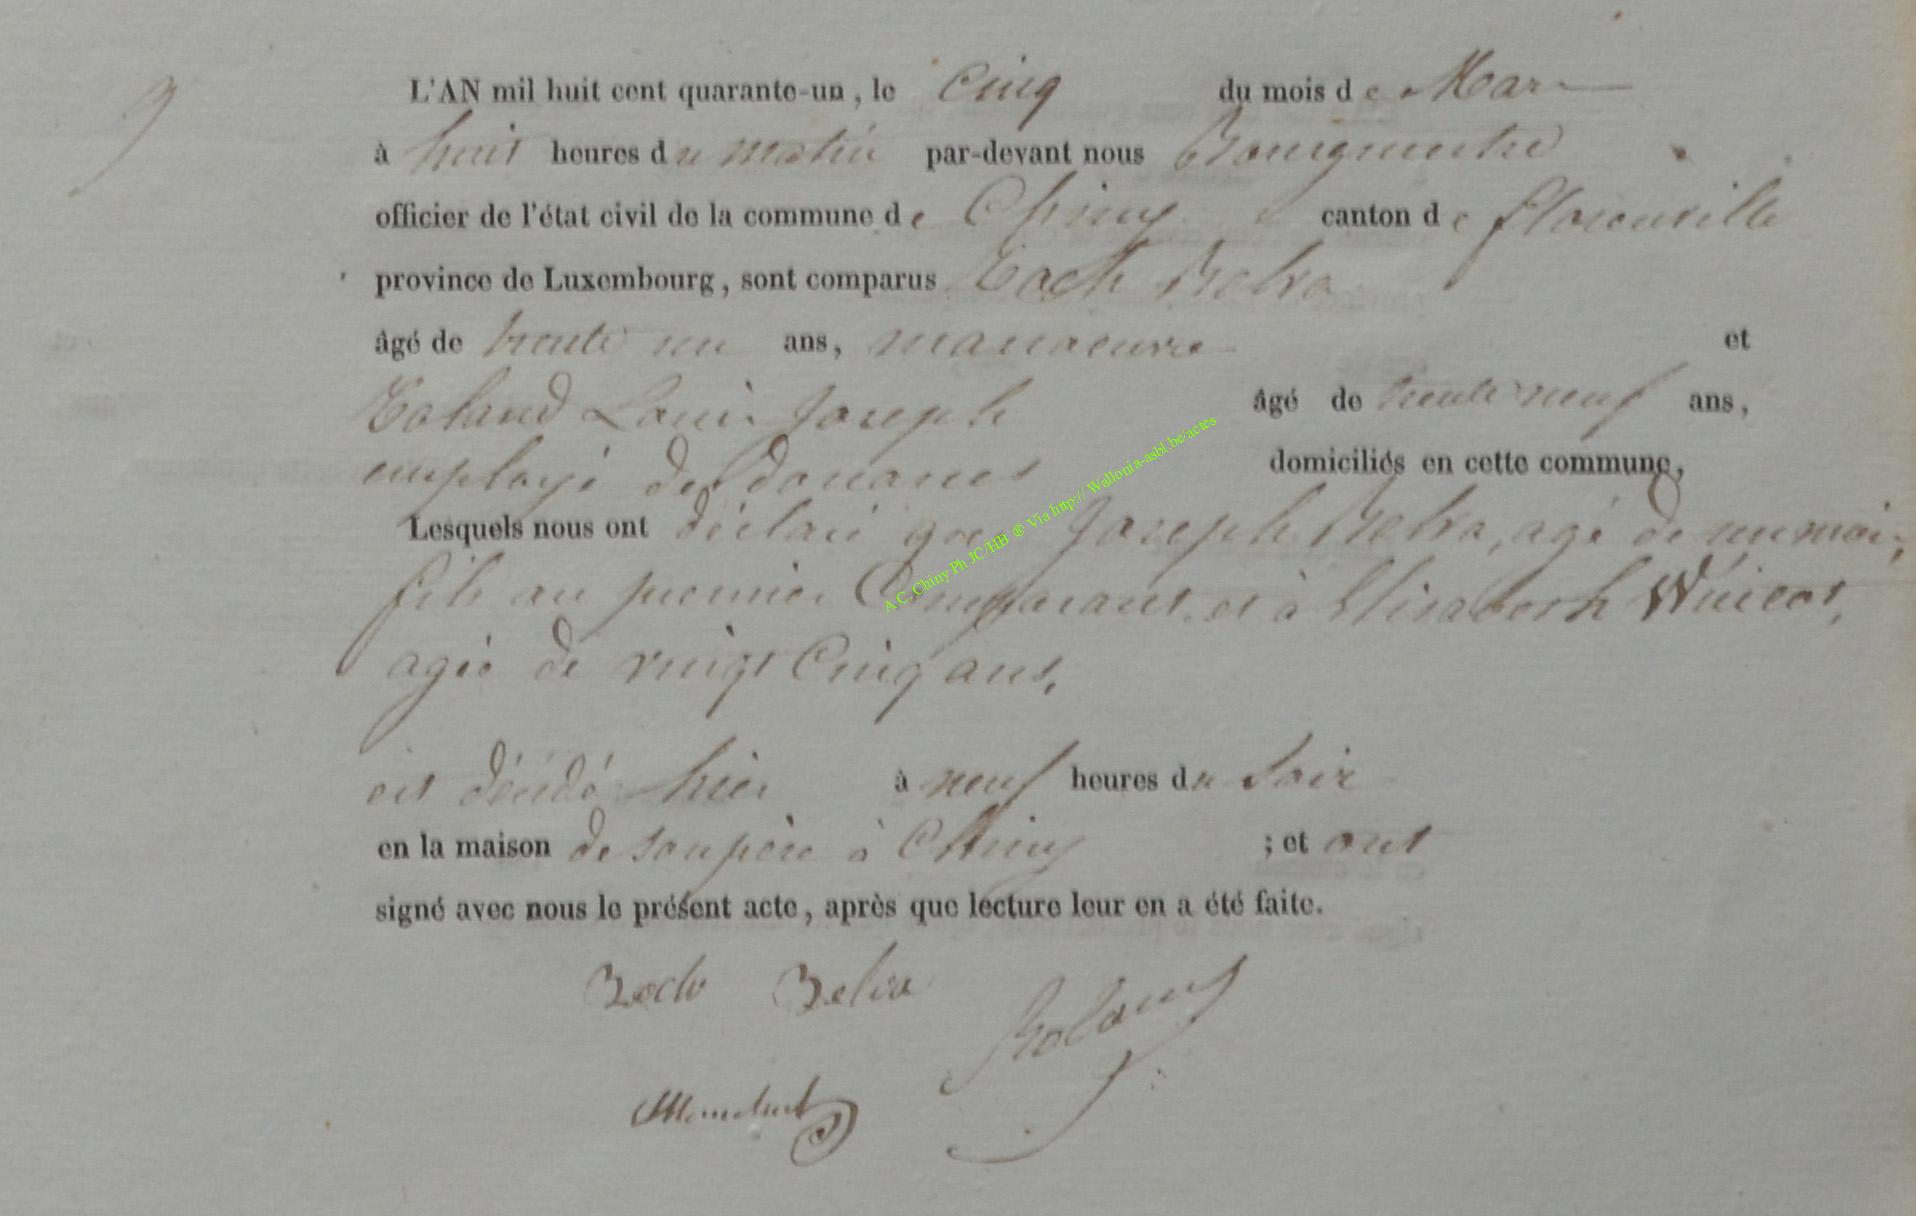 9
L'AN mil huit cent quarante-un, le Cinq du mois de Mars
à huit heures du matin par-devant nous Bourgmestre
officier de l'état civil de la commune de Chiny canton de florenville
province de Luxembourg, sont comparus Roch Belva
âgé de trente un ans, manoeuvre et
Roland Louis Joseph âgé de trente neuf ans,
employé des douanes domiciliés en cette commune,
Lesquels nous ont déclaré que Joseph Belva, agé de un mois,
fils au premier Comparant, et à Elisabeth
agée de vingt Cinq ans,
est décédé hier à neuf heures du Soir
en la maison de son père à Chiny ; et ont
signé avec nous le présent acte, après que lecture leur en a été faite.
Roch Belva
Roland
A.C. Chiny Ph JC/HB ® Via http:// Wallonia-asbl.be/actes